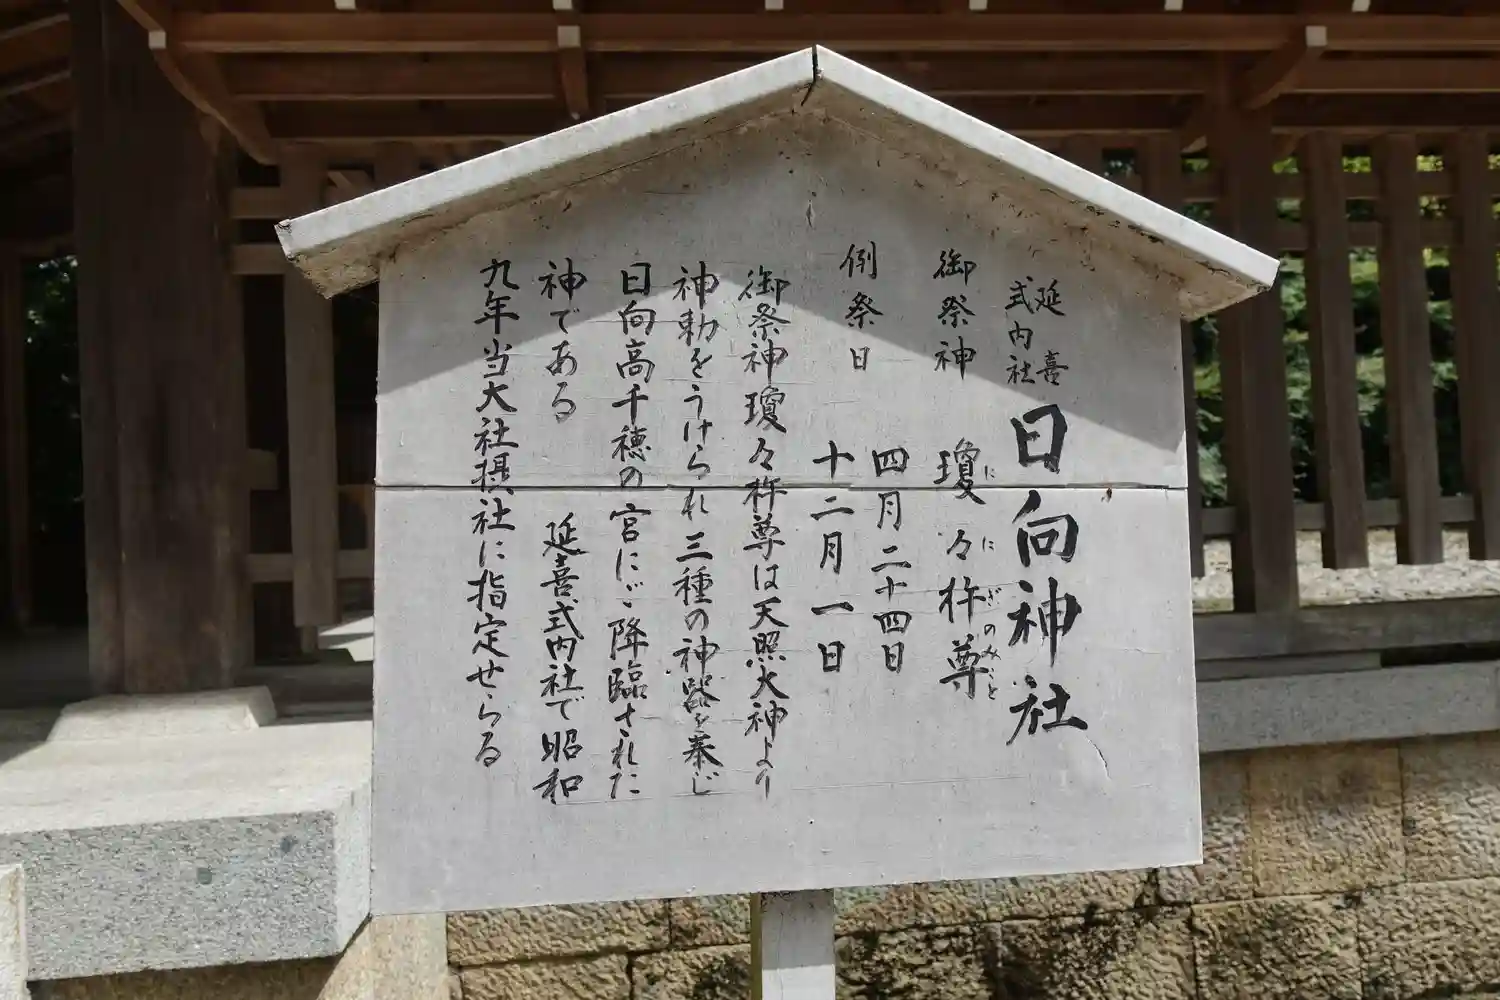 延喜
式内社
日向神社
御祭神 瓊々杵尊
ににぎのみこと
例祭日
四月二十四日
十二月一日
御祭神瓊々杵尊は天照大神より
神勅をうけられ三種の神器を奉じ
日向高千穂の宮にご降臨された
神である 延喜式内社で昭和
九年当大社摂社に指定せらる